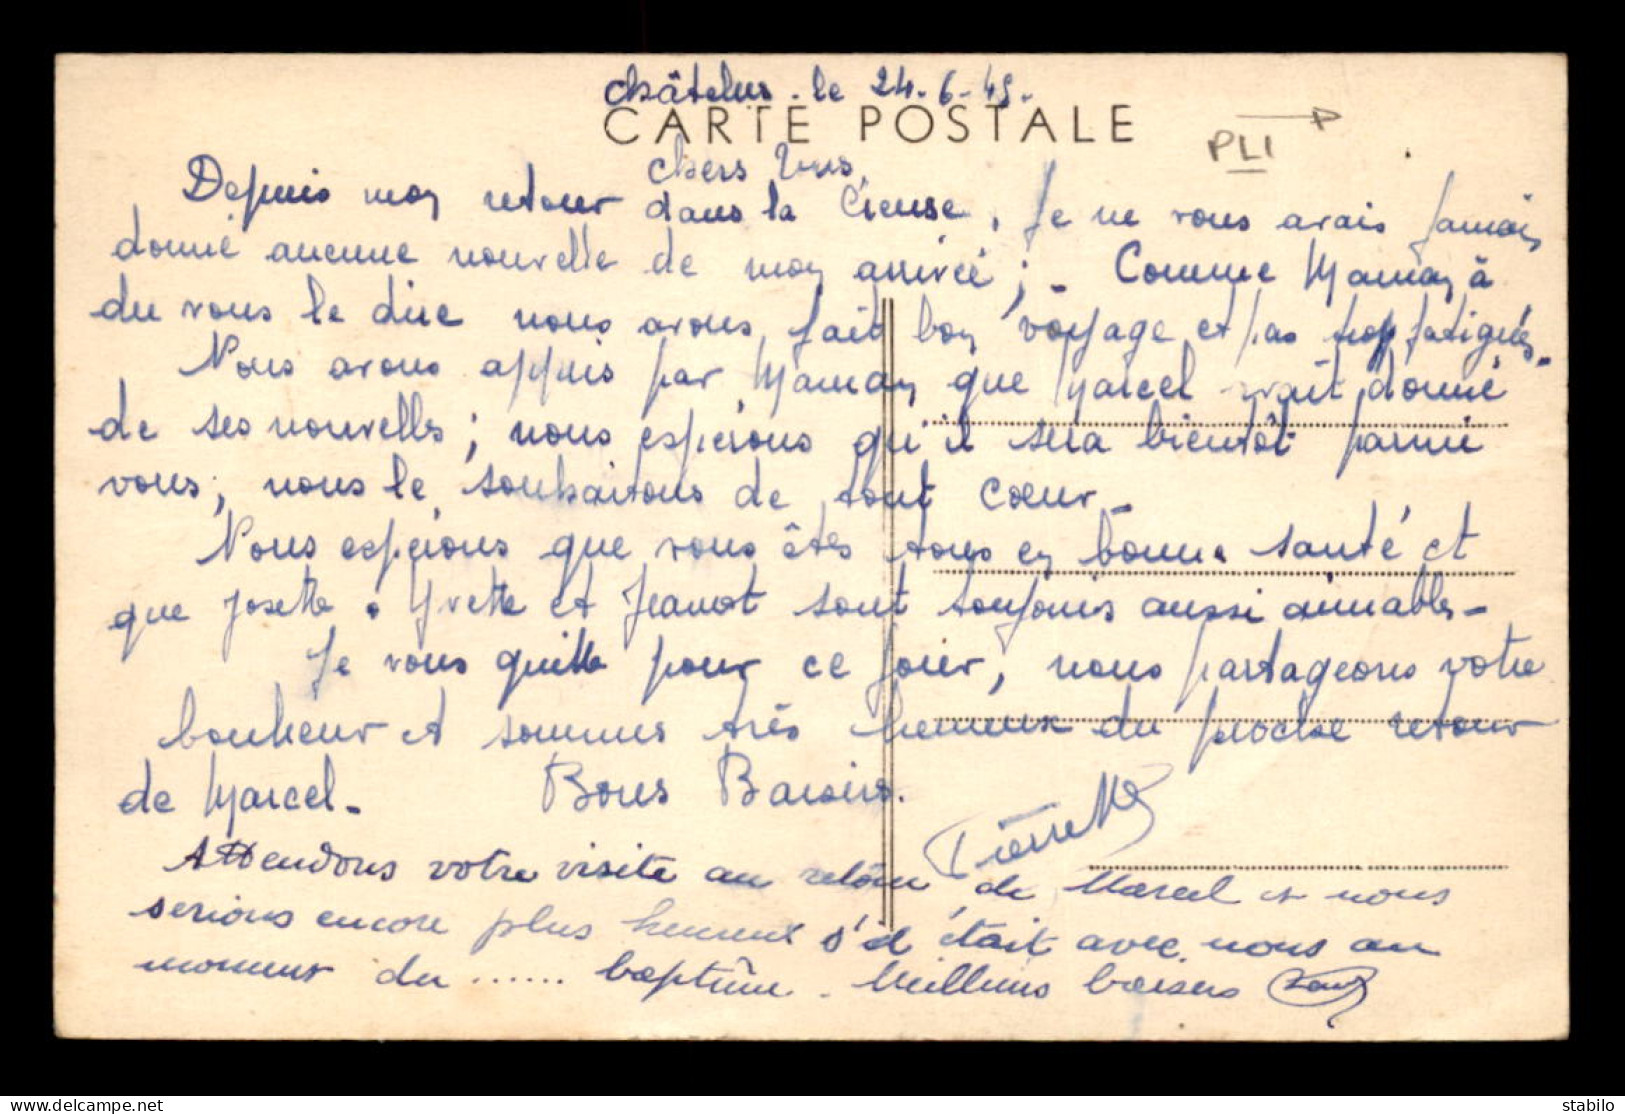 Châtelus. le 24-6-45.
CARTE POSTALE
PLI
Chers Tous,
Depuis mon retour dans la Creuse, je ne vous avais jamais
donné aucune nouvelle de mon arrivée ; - Comme Maman à
du vous le dire nous avons fait bon voyage et pas trop fatigués.
Nous avons appris par Maman que Marcel avait donné
de ses nouvelles ; nous espérons qu'il sera bientôt parmi
vous ; nous le souhaitons de tout cœur -
Nous espérons que vous êtes tous en bonne santé et
que Josette, Yvette et Jeanot sont toujours aussi aimables -
Je vous quitte pour ce jour, nous partageons votre
bonheur et sommes très heureux du proche retour
de Marcel - Bons Baisers.
Pierrette
Attendons votre visite au retour de Marcel et nous
serions encore plus heureux s'il était avec nous au
moment du ...... baptême. Meilleurs baisers
delcampe.net
stabilo